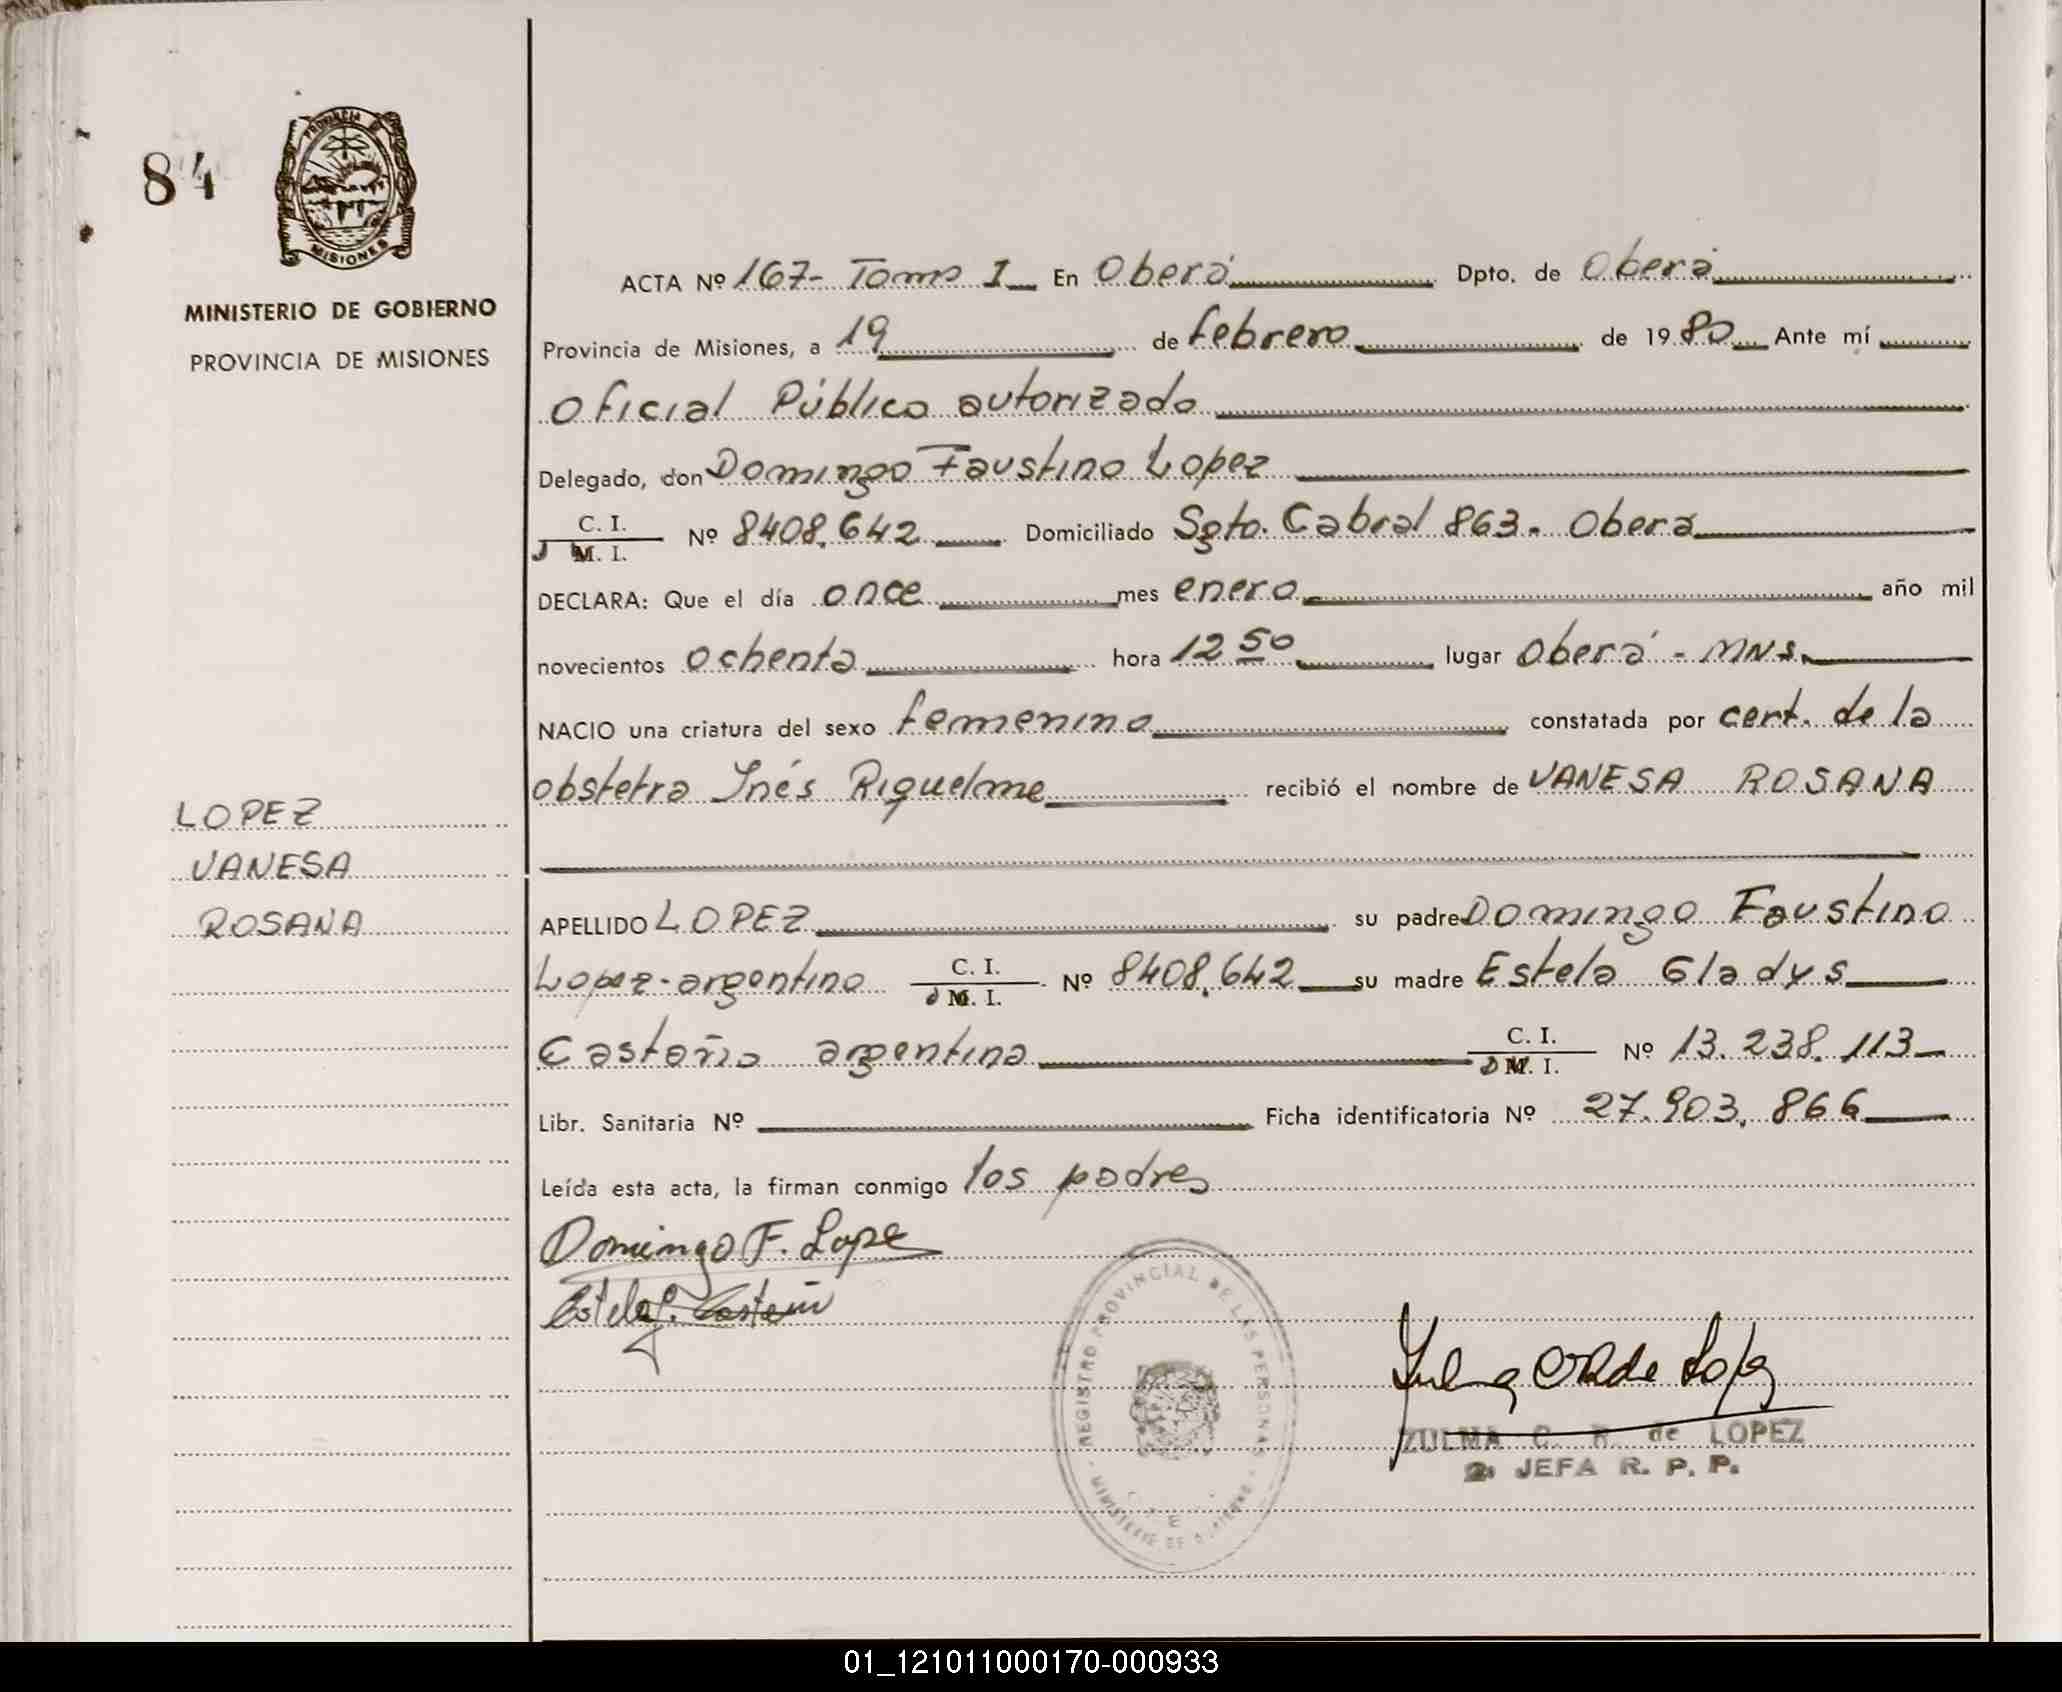 84
PROVINCIA DE
MISIONES
MINISTERIO DE GOBIERNO
PROVINCIA DE MISIONES
LOPEZ
VANESA
ROSANA
ACTA Nº 167- Tomo I En Oberá Dpto. de Oberá
Provincia de Misiones, a 19 de febrero de 1980 Ante mí
Oficial Público autorizado
Delegado, don Domingo Faustino Lopez
C. I.
D M. I. Nº 8408.642 Domiciliado Sgto. Cabral 863- Oberá
DECLARA: Que el día once mes enero año mil
novecientos ochenta hora 12 50 lugar Oberá - MNS.
NACIO una criatura del sexo femenino constatada por cert. de la
obstetra Inés Riquelme recibió el nombre de VANESA ROSANA
APELLIDO LOPEZ su padre Domingo Faustino
Lopez-argentino C. I. D M. I. Nº 8408.642 su madre Estela Gladys
Castaño argentina C. I. D M. I. Nº 13.238.113
Libr. Sanitaria Nº Ficha identificatoria Nº 27.903.866
Leída esta acta, la firman conmigo los padres
Domingo F. Lope
Estela
REGISTRO PROVINCIAL DE LAS PERSONAS
MINISTERIO DE GOBIERNO
de Lopez
ZULMA C. R. de LOPEZ
2º JEFA R. P. P.
01_121011000170-000933